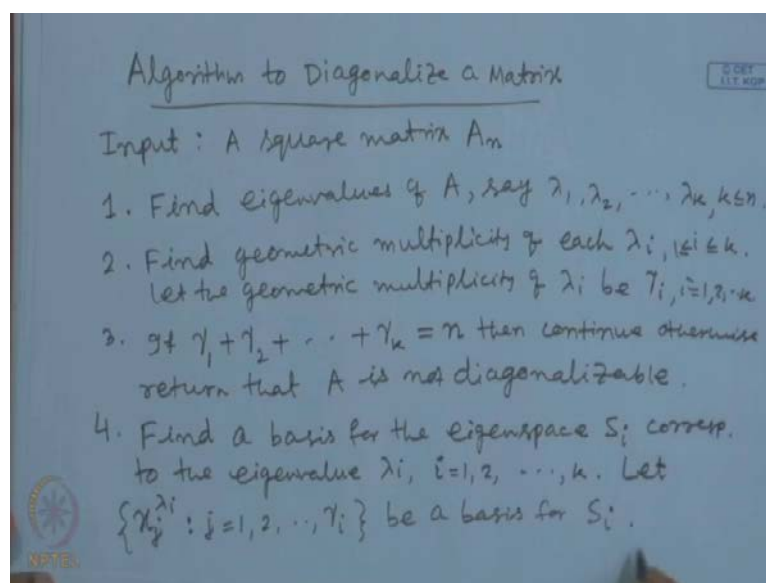 Algorithm to Diagonalize a Matrix
© CET
I.I.T. KGP
Input : A square matrix Aₙ
1. Find eigenvalues of A, say λ₁, λ₂, ..., λₖ, k≤n.
2. Find geometric multiplicity of each λᵢ, 1≤i≤k.
Let the geometric multiplicity of λᵢ be γᵢ, i=1,2,..k
3. If γ₁+γ₂+ .. +γₖ = n then continue otherwise
return that A is not diagonalizable.
4. Find a basis for the eigenspace Sᵢ corresp.
to the eigenvalue λᵢ, i=1,2, ..., k. Let
{xⱼ^λᵢ : j=1,2,..,γᵢ} be a basis for Sᵢ.
NPTEL